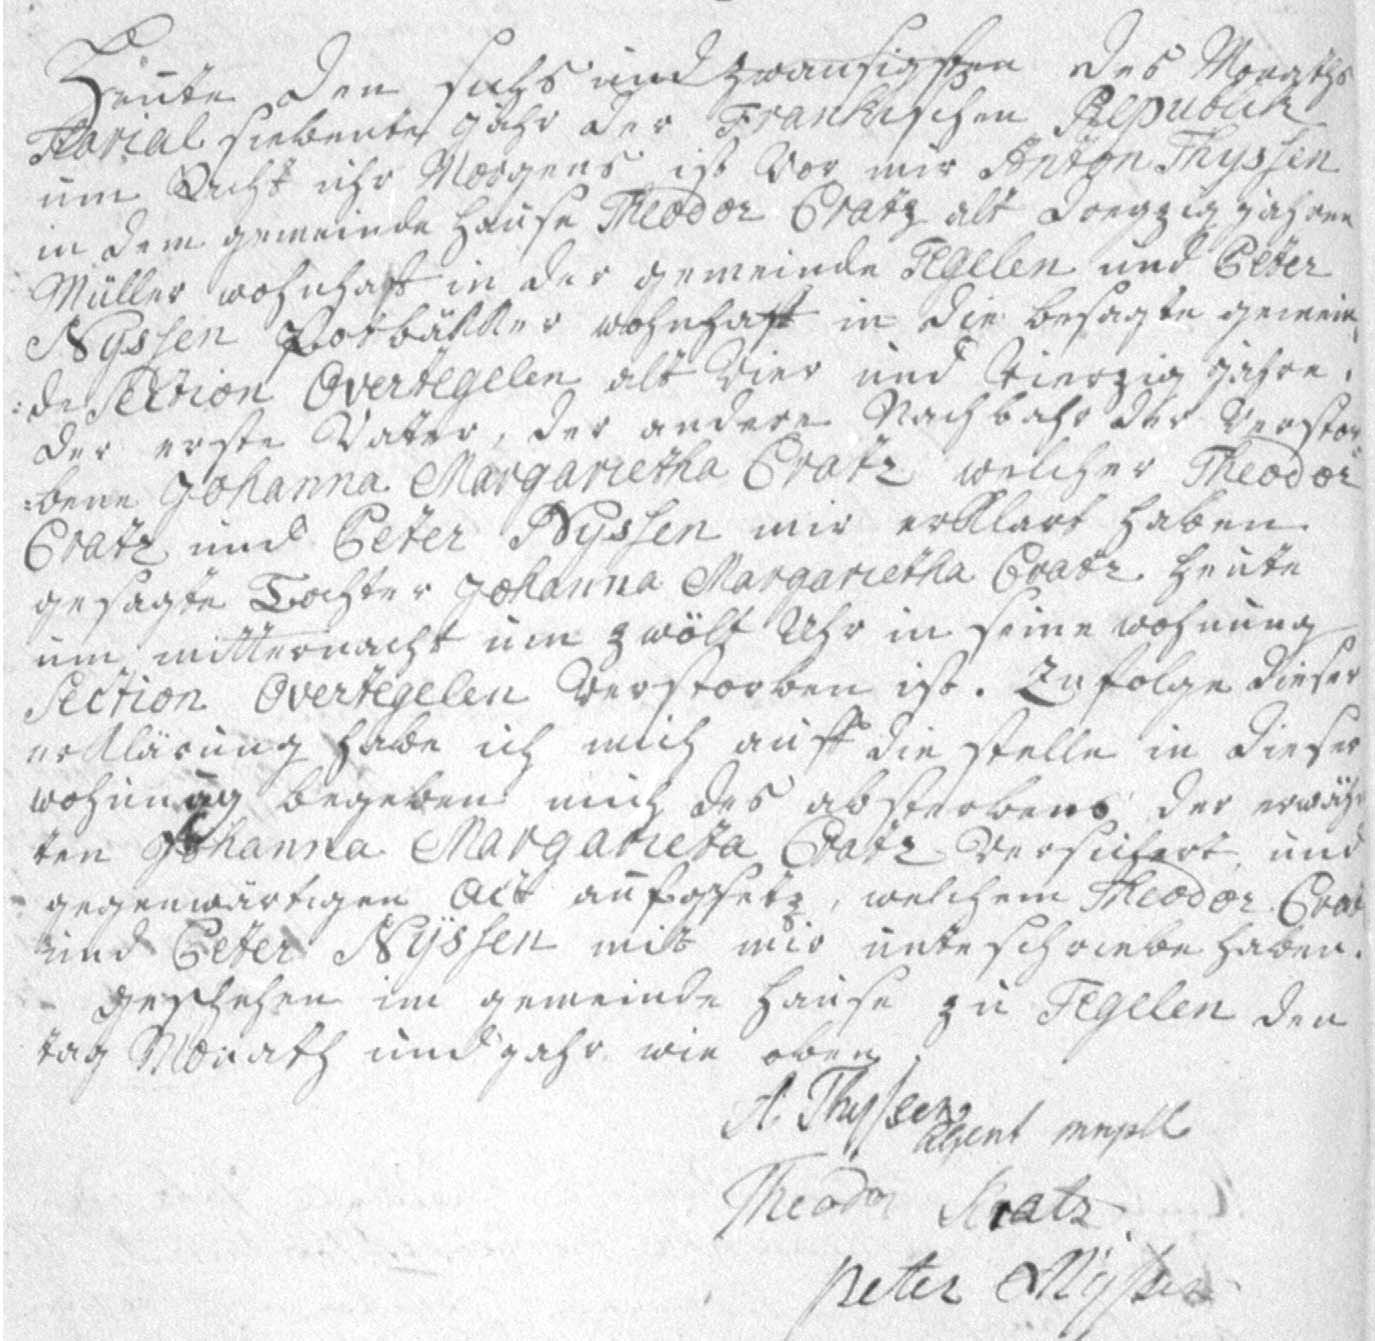 Heute den sechs und zwansigsten des Monaths
Florial siebente Jahr der Frankischen Republik
um Acht uhr Morgens ist vor mir Anton Thyssen
in dem gemeinde Hause Theodor Cratz alt dreyzig jahren
Müller wohnhaft in der gemeinde Tegelen und Peter
Nyssen Potbäkker wohnhaft in die besagte gemein
:de Section Overtegelen alt vier und vierzig jahre.
der erste Vater, der andere Nachbahr der verstor
:bene Johanna Margarietha Cratz welcher Theodor
Cratz und Peter Nyssen mir erklart haben
gesagte Tochter Johanna Margarietha Cratz heute
um mitternacht um zwölf Uhr in seine wohnung
Section Overtegelen verstorben ist. Zufolge dieser
erklärung habe ich mich auff die stelle in dieser
wohnung begeben mich des absterbens der erwäh
ten Johanna Margarieta Cratz versichert und
gegenwärtigen Act aufgesetz, welchem Theodor Crat
und Peter Nyssen mit mir unteschriebe haben.
geschehen im gemeinde Hause zu Tegelen den
tag Monath und jahr wie oben
A. Thyssen
Agent mnpll
Theodor Kratz
peter Nÿssen